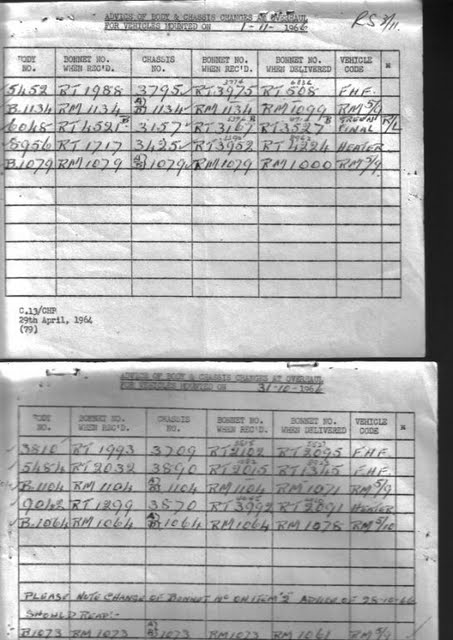 ADVICE OF BODY & CHASSIS CHANGES AT OVERHAUL
FOR VEHICLES MOUNTED ON 1-11- 1966
BODY NO. BONNET NO. WHEN REC'D. CHASSIS NO. BONNET NO. WHEN REC'D. BONNET NO. WHEN DELIVERED VEHICLE CODE *
5452 RT 1988 3795 RT 3975 RT 508 F.H.F.
B.1134 RM 1134 1134 RM 1134 RM 1099 RM 5/9
6048 RT 4521 B 3157 RT 3167 B RT 3527 B FINAL R/L
8956 RT 1717 3425 RT 3952 RT 4224 HEATER
B.1079 RM 1079 1079 RM 1079 RM 1000 RM 5/9
C.13/CHP
29th April, 1964
(79)
ADVICE OF BODY & CHASSIS CHANGES AT OVERHAUL
FOR VEHICLES MOUNTED ON 31-10- 1966
BODY NO. BONNET NO. WHEN REC'D. CHASSIS NO. BONNET NO. WHEN REC'D. BONNET NO. WHEN DELIVERED VEHICLE CODE *
3810 RT 1993 3709 RT 2102 RT 2095 F.H.F.
5484 RT 2032 3890 RT 2015 RT 1345 F.H.F.
B.1104 RM 1104 1104 RM 1104 RM 1071 RM 5/9
RT 1299 3870 RT 3992 RT 2091 HEATER
B.1064 RM 1064 1064 RM 1064 RM 1078 RM 5/10
PLEASE NOTE CHANGE OF BONNET No ON ITEM 2 ADVICE OF 28-10-66
SHOULD READ:-
B1073 RM 1073 1073 RM 1073 RM 1061 RM 5/9